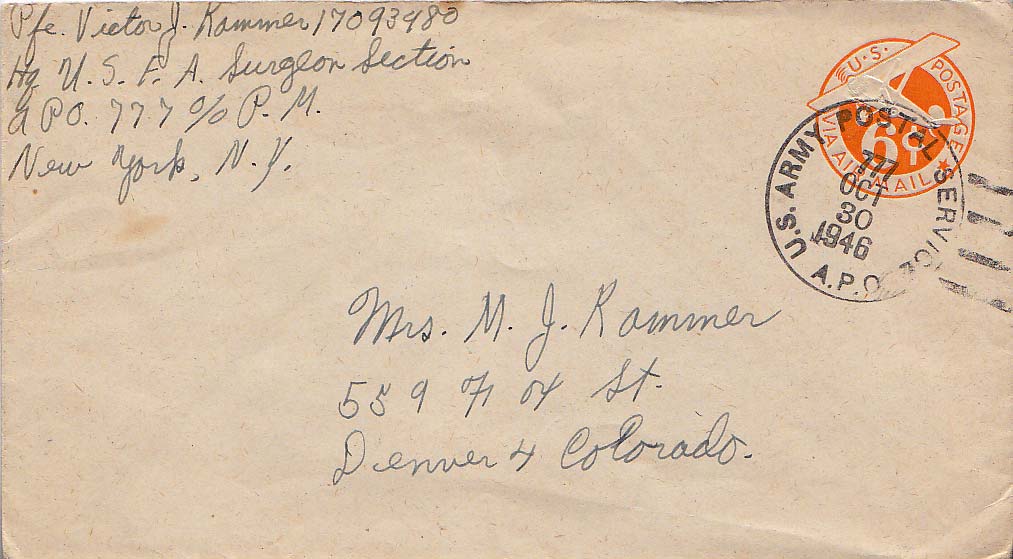 Pfc. Victor J. Kammer 17093480
Hq U. S. F. A. Surgeon Section
A P O. 777 c/o P. M.
New York, N. Y.
U.S. POSTAGE
6¢
VIA AIR MAIL
U.S. ARMY POSTAL SERVICE
777
OCT
30
1946
A.P.O.
Mrs. M. J. Kammer
559 Fox St.
Denver 4 Colorado.